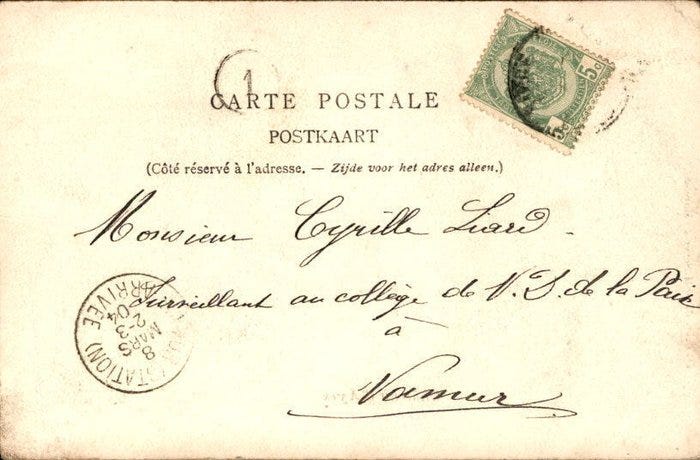 1
CARTE POSTALE
POSTKAART
(Côté réservé à l'adresse. — Zijde voor het adres alleen.)
Monsieur Cyrille Liard.
Surveillant au collège de N. D. de la Paix
à
Namur
5c
5c
(STATION)
8 S
MARS
2-3
04
ARRIVÉE